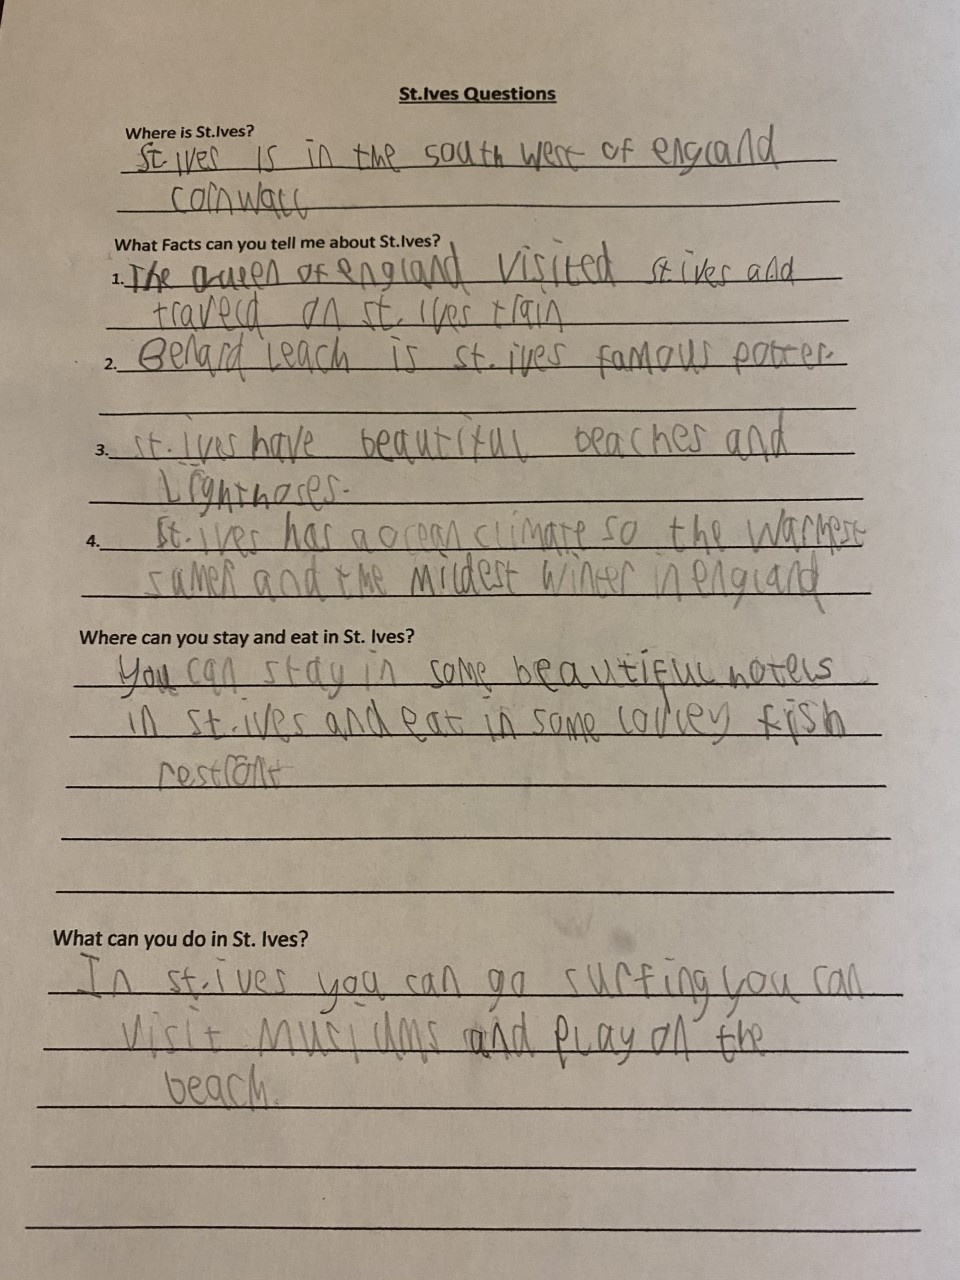 St.Ives Questions
Where is St.Ives?
St ives is in the south west of england
cornwall
What Facts can you tell me about St.Ives?
1. The queen of england visited st ives and
traveld on st. ives train
2. Benard leach is st. ives famous potter.
3. st. ives have beautiful beaches and
Lighthoses.
4. St. ives has a ocean climate so the warmest
sumer and the mildest winter in england
Where can you stay and eat in St. Ives?
You can stay in some beautiful hotels
in st. ives and eat in some fish
What can you do in St. Ives?
In st. ives you can go surfing you can
visit musiums and play on the
beach.